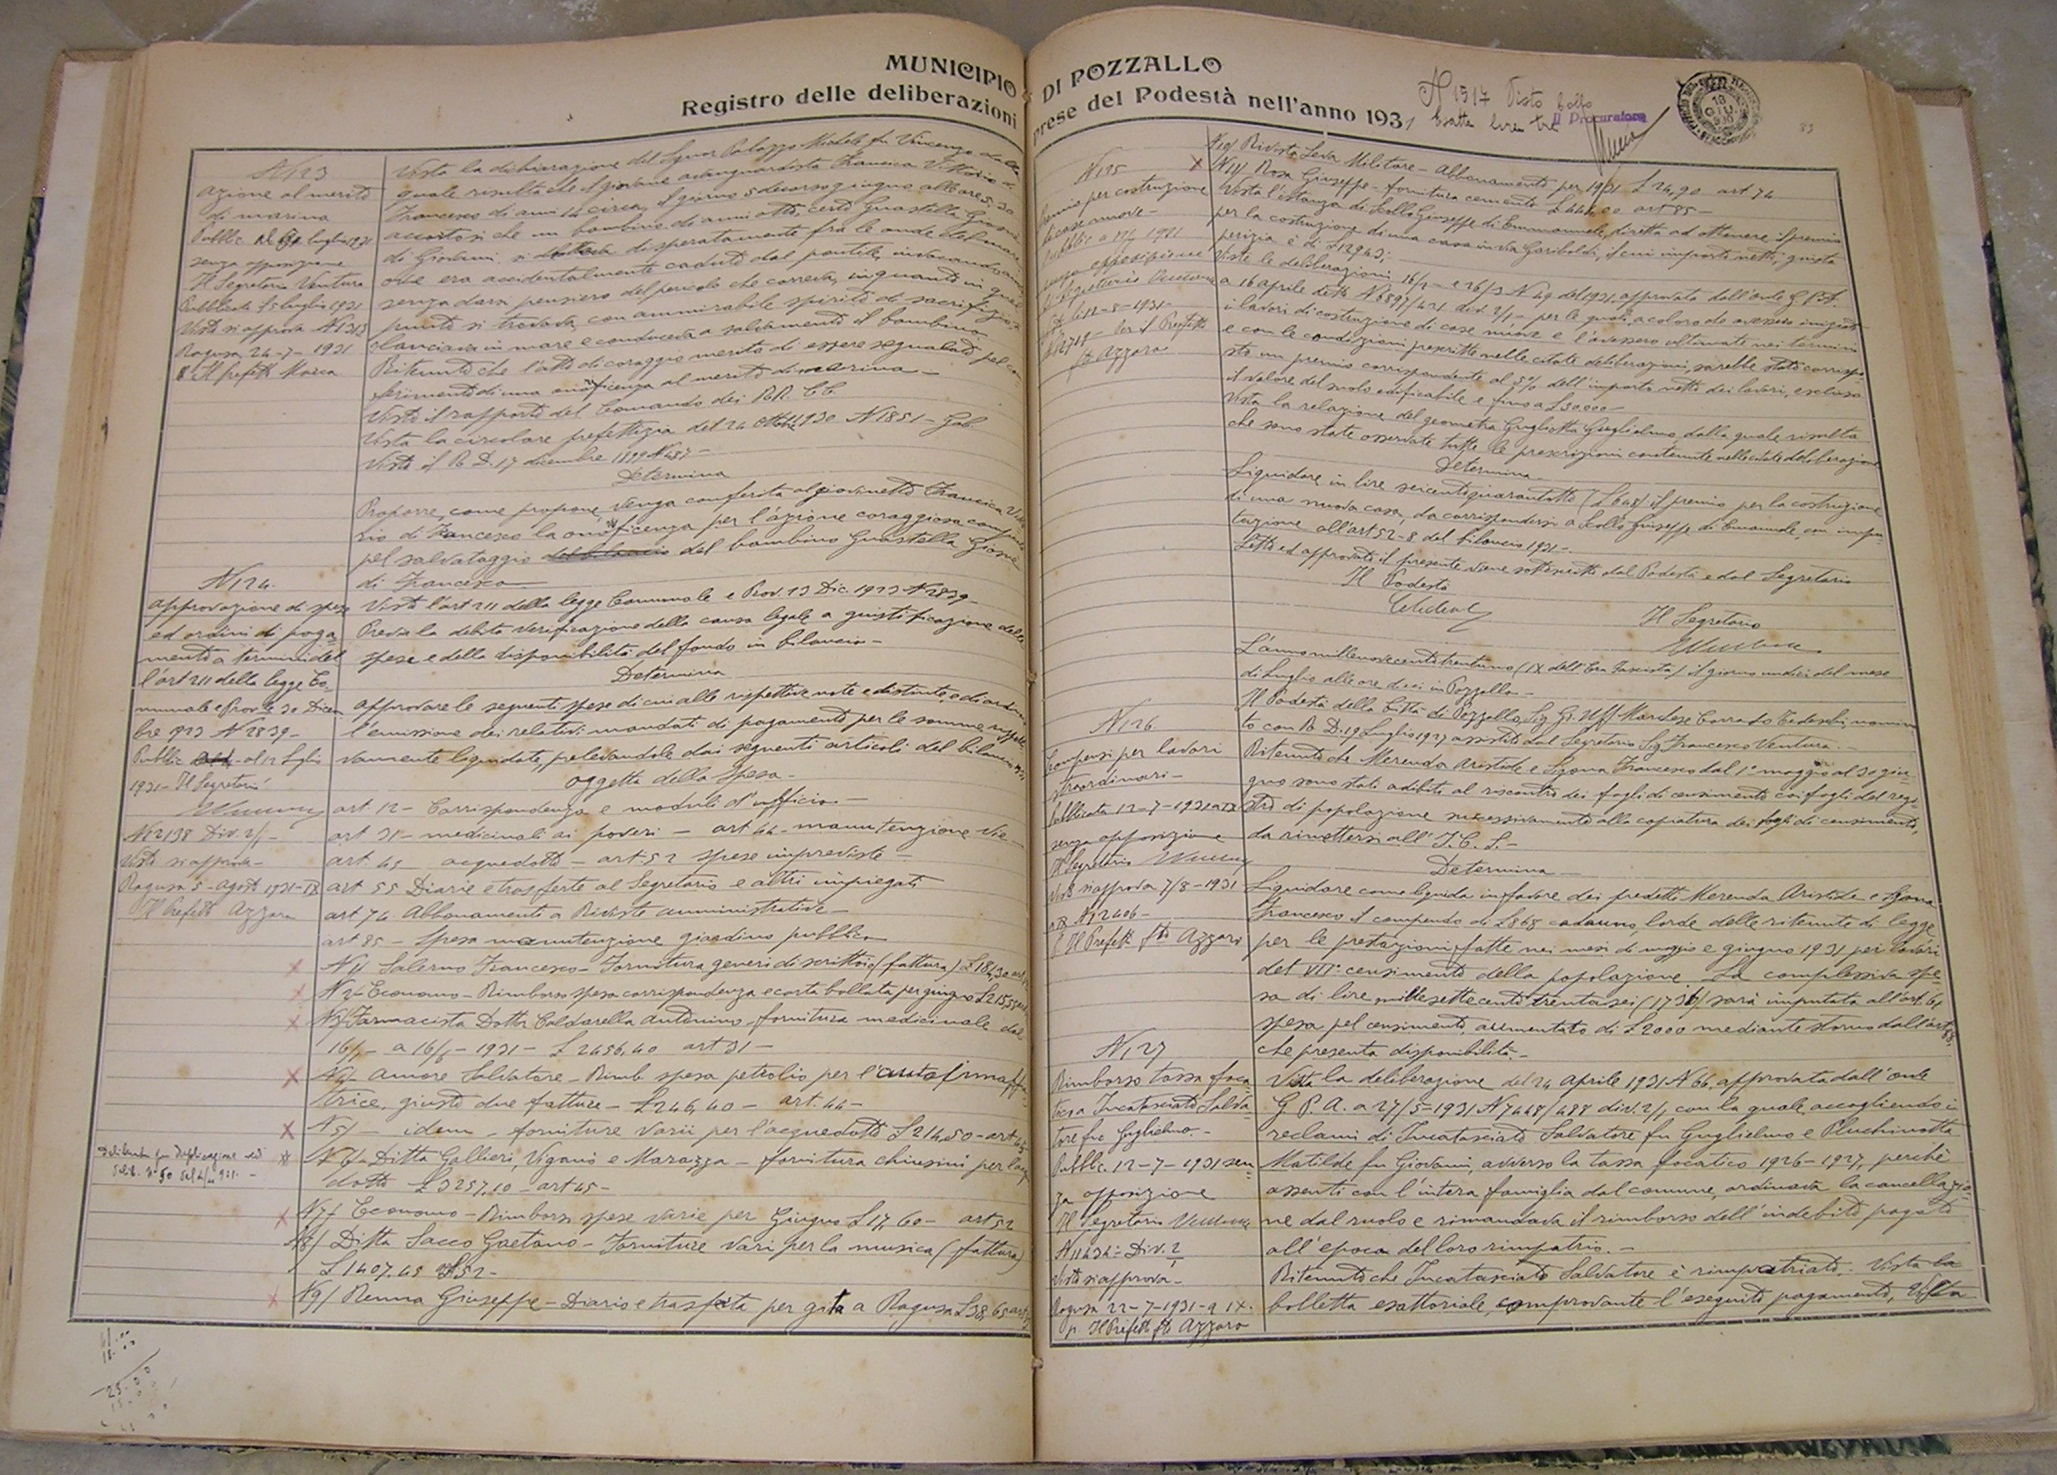 MUNICIPIO DI POZZALLO
Registro delle deliberazioni prese del Podestà nell'anno 1931
N 1517 Visto
Esatte lire tre
Il Procuratore
83
N 123
azione al merito
di marina
Pubblic. luglio 1931
senza opposizione
Il Segretario Ventura
Pubblicata luglio 1931
Visto si approva
Ragusa, 24-7-1931
Il prefetto
Vista la dichiarazione del Signor Palazzo Michele fu Vincenzo dalla
quale risulta che il giovane avanguardista Francica Vittorio di
Francesco di anni 14 circa, il giorno 5 decorso giugno alle ore 5,30
accortosi che un bambino di anni otto, certo Guastella Giosuè
di Giovanni si disperatamente fra le onde del mare
ove era accidentalmente caduto dal pontile, invocando
senza darsi pensiero del pericolo che correva, in quanto in quel
punto si trovava, con ammirabile spirito di sacrifizio si
slanciava in mare e conduceva a salvamento il bambino
Ritenuto che l'atto di coraggio merita di essere segnalato pel con-
ferimento di una onorificenza al merito di marina -
Visto il rapporto del Comando dei RR. CC.
Vista la circolare prefettizia del 24 1930 N 1851 - Gab.
Visto il R. D. 17 dicembre 1899 N 487 -
Determina
Proporre, come propone, venga conferita al giovinetto Francica Vitto-
rio di Francesco la onorificenza per l'azione coraggiosa compiuta
pel salvataggio del bambino Guastella Giosuè
di Francesco
N 124.
approvazione di spese
ed ordini di paga-
mento a termini del
l'art 211 della legge Co-
munale e Prov.le 30 Dicem
bre 923 N 2839 -
Pubblic. al 12 luglio
1931 - Il Segretario
N 12138 Div. 2/1 -
Visto si approva -
Ragusa 5 - Agosto 1931 - IX
Il Prefetto Azzaro
Visto l'art 211 della legge Comunale e Prov. 13 Dic. 1923 N 2839 -
Previa la debita verificazione della causa legale a giustificazione delle
spese e della disponibilità del fondo in bilancio -
Determina
approvare le seguenti spese di cui alle rispettive note e distinte, e di ordinare
l'emissione dei relativi mandati di pagamento per le somme rispetti-
vamente liquidate, prelevandole dai seguenti articoli del bilancio
oggetto della spesa -
art. 12 - Corrispondenza e moduli d'ufficio -
art 31 - medicinali ai poveri - art 44 - manutenzione vie -
art. 45 - acquedotto - art. 52 spese impreviste -
art 55 Diarie e trasferte al Segretario e altri impiegati
art 74 - Abbonamento a Riviste amministrative -
art 85 - Spesa manutenzione giardino pubblico
N 1/ Salerno Francesco - Fornitura generi di scrittoio (fattura)
N 2/ Economo - Rimborso spesa corrispondenza e carta bollata per giugno
N 3/ Farmacista Dottor Caldarella Antonino - fornitura medicinale dal
a 16/6 - 1931 - £ 2456,40 art 31 -
N 4/ Amore Salvatore - Rimb. spesa petrolio per l'autoinnaffia-
trice, giusto due fatture - £ 246,40 - art. 44 -
N 5/ idem - forniture varii per l'acquedotto £ 214,50 - art 45
N 6/ Ditta Gallieri, Viganò e Marazza - fornitura chiusini per l'acque
dotto £ 3257,10 - art 45 -
N 7/ Economo - Rimborso spese varie per Giugno £ 17,60 - art 52
N 8/ Ditta Sacco Gaetano - Forniture vari per la musica (fattura)
£ 1407,45 art 52 -
N 9/ Renna Giuseppe - Diarie e trasferta per gita a Ragusa £ 38,65
N 10/ Rivista Leva Militare - Abbonamento per 1931 £ 24,90 art 74
N 11/ Rosa Giuseppe - fornitura cemento £ 444,00 art 85 -
N 125
Premio per costruzione
case nuove -
senza opposizione
Il Segretario
12-8-1931 -
Per il Prefetto
fto Azzaro
Vista l'istanza di Scollo Giuseppe di Emmanuele, diretta ad ottenere il premio
per la costruzione di una casa in via Garibaldi, il cui importo netto, giusta
perizia è di £ 12963:
Viste le deliberazioni 16/2 - e 26/3 N 49 del 1931, approvate dall'onle G. P. A.
a 16 aprile detto N 6897/421 div. 2/1 - per le quali, a coloro che avessero iniziati
i lavori di costruzione di case nuove e l'avessero ultimate nei termini
e con le condizioni prescritte nelle citate deliberazioni, sarebbe stato corrispo-
sto un premio corrispondente al 5% dell'importo netto dei lavori, escluso
il valore del suolo edificabile e fino a £ 30000 -
Vista la relazione del geometra Gugliotta Guglielmo, dalla quale risulta
che sono state osservate tutte le prescrizioni contenute nelle citate deliberazioni
Determina
Liquidare in lire seicentoquarantotto (£ 648) il premio per la costruzione
di una nuova casa, da corrispondersi a Scollo Giuseppe di Emanuele, con impu-
tazione all'art 52-8 del bilancio 1931 -
Letto ed approvato il presente viene sottoscritto dal Podestà e dal Segretario
Il Podestà
Il Segretario
L'anno millenovecentotrentuno (IX dell'Era Fascista) il giorno undici del mese
di Luglio alle ore dieci in Pozzallo -
N 126
Compensi per lavori
straordinari -
Pubblicata 12-7-1931 a IX
senza opposizione
Il Segretario
Visto si approva 7/8 - 1931
a IX N 12406 -
Il Prefetto fto Azzaro
Il Podestà della Città di Pozzallo Sig. Gr. Uff. Marchese Corrado Tedeschi, nomina
to con R. D. 19 Luglio 1927 assistito dal Segretario Sig. Francesco Ventura. -
Ritenuto che Merenda Aristide e Sigona Francesco dal 1° maggio al 30 giu-
gno sono stati adibiti al riscontro dei fogli di censimento coi fogli del regi-
stro di popolazione successivamente alla copiatura dei fogli di censimento,
da rimettersi all'I. C. S. -
Determina
Liquidare come liquida in favore dei predetti Merenda Aristide e Sigona
Francesco il compenso di £ 868 cadauno, lorde delle ritenute di legge
per le prestazioni fatte nei mesi di maggio e giugno 1931 pei lavori
del VII° censimento della popolazione. La complessiva spe-
sa di lire millesettecentotrentasei (1736) sarà imputata all'art. 61
spesa pel censimento, aumentato di £ 2000 mediante storno dall'art 83,
che presenta disponibilità. -
N 127
Rimborso tassa foca
tico a Incatasciato Salva
tore fu Guglielmo. -
Pubblic. 12-7-1931 sen
za opposizione
Il Segretario
N 11434 - Div. 2
Visto si approva -
Ragusa 22-7-1931 - a IX.
p. Il Prefetto fto Azzaro
Vista la deliberazione del 24 aprile 1931 N 66, approvata dall'onle
G. P. A. a 27/5 - 1931 N 7448/488 div. 2/1, con la quale, accogliendo i
reclami di Incatasciato Salvatore fu Guglielmo e Pluchinotta
Matilde fu Giovanni, avverso la tassa focatico 1926-1927, perché
assenti con l'intera famiglia dal comune, ordinava la cancellazio-
ne dal ruolo e rimandava il rimborso dell'indebito pagato
all'epoca del loro rimpatrio. -
Ritenuto che Incatasciato Salvatore è rimpatriato. Vista la
bolletta esattoriale, comprovante l'eseguito pagamento, Vista